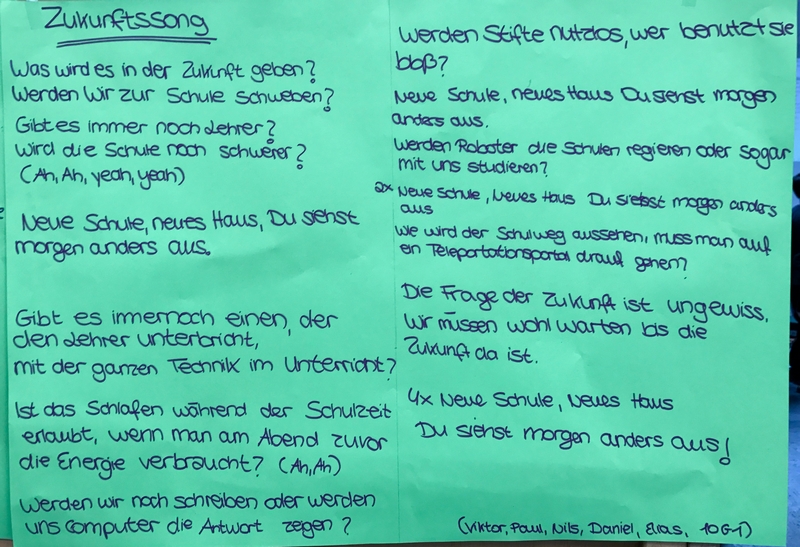 Zukunftssong
Was wird es in der Zukunft geben?
Werden wir zur Schule schweben?
Gibt es immer noch Lehrer?
Wird die Schule noch schwerer?
(Ah, Ah, yeah, yeah)
Neue Schule, neues Haus, Du siehst
morgen anders aus.
Gibt es immernoch einen, der
den Lehrer unterbricht,
mit der ganzen Technik im Unterricht?
Ist das Schlafen während der Schulzeit
erlaubt, wenn man am Abend zuvor
die Energie verbraucht? (Ah, Ah)
Werden wir noch schreiben oder werden
uns Computer die Antwort zeigen?
Werden Stifte nutzlos, wer benutzt sie
bloß?
Neue Schule, neues Haus Du siehst morgen
anders aus.
Werden Roboter die Schulen regieren oder sogar
mit uns studieren?
2x Neue Schule, Neues Haus Du siehst morgen anders
aus
Wie wird der Schulweg aussehen, muss man auf
ein Teleportationsportal drauf gehen?
Die Frage der Zukunft ist ungewiss.
Wir müssen wohl warten bis die
Zukunft da ist.
4x Neue Schule, Neues Haus
Du siehst morgen anders aus!
(Viktor, Paul, Nils, Daniel, Elias, 10G1)